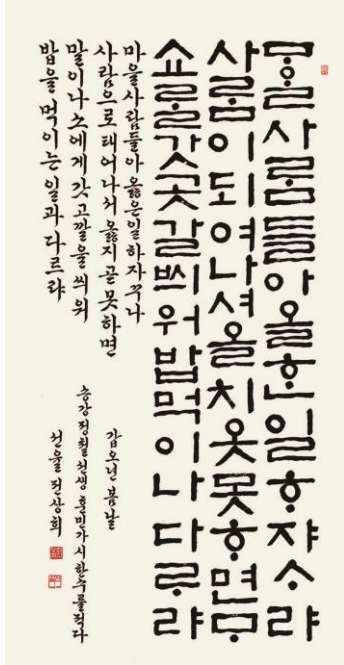 ᄆᆞᄋᆞᆯ사ᄅᆞᆷ들아올ᄒᆞᆫ일ᄒᆞ쟈ᄉᆞ랴
사ᄅᆞᆷ이되여나셔올치옷못ᄒᆞ면ᄆᆞ
쇼ᄅᆞᆯ갓곳갈씌워밥먹이나다ᄅᆞ랴
마을사람들아 옳은일하자꾸나
사람으로태어나서 옳지곧못하면
말이나소에게갓고깔을씌워
밥을먹이는일과다르랴
갑오년봄날
송강정철선생훈민가시한수를적다
전상희